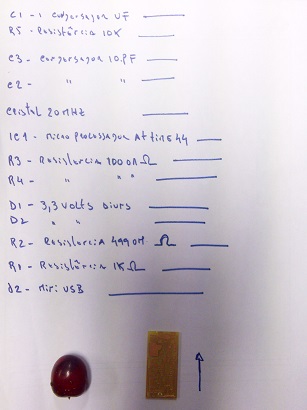 C1 - 1 conpursapor UF
R5 - Resistência 10K
C3 - conpursapor 10.PF
C2 - " "
cristal 20MHz
IC1 - micro processador AttinE44
R3 - Resistencia 100 OΩ
R4 - " " "
D1 - 3,3 volts
D2 " "
R2 - Resistencia 499 OM Ω
R1 - Resistência 1K Ω
J2 - Mini USB